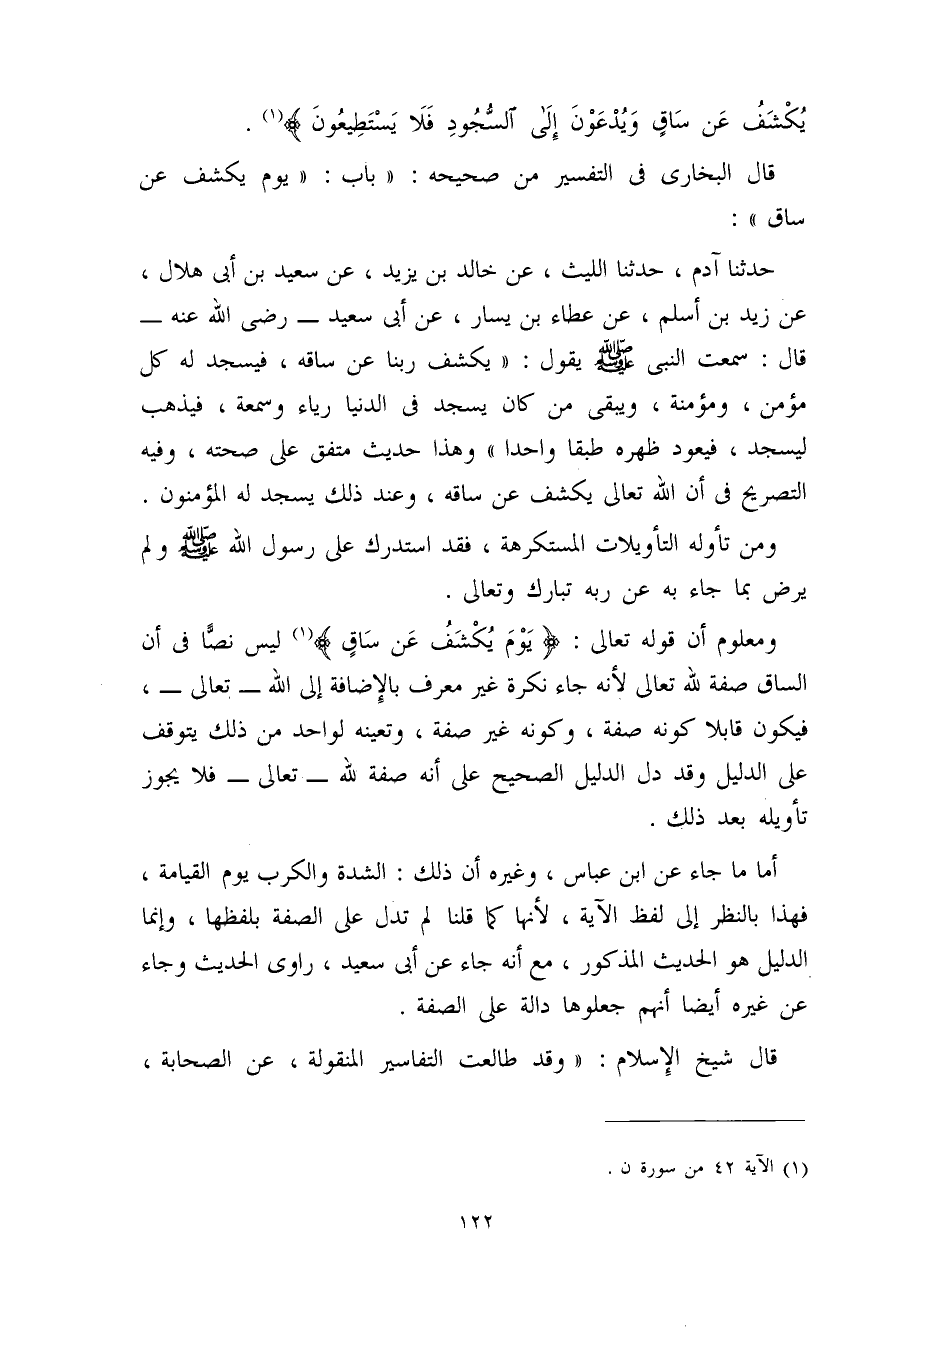 يُكْشَفُ عَن سَاقٍ وَيُدْعَوْنَ إِلَى ٱلسُّجُودِ فَلَا يَسْتَطِيعُونَ ﴾(١) .
قال البخارى فى التفسير من صحيحه : « باب : « يوم يكشف عن
ساق » :
حدثنا آدم ، حدثنا الليث ، عن خالد بن يزيد ، عن سعيد بن أبى هلال ،
عن زيد بن أسلم ، عن عطاء بن يسار ، عن أبى سعيد ــ رضى الله عنه ــ
قال : سمعت النبى ﷺ يقول : « يكشف ربنا عن ساقه ، فيسجد له كل
مؤمن ، ومؤمنة ، ويبقى من كان يسجد فى الدنيا رياء وسمعة ، فيذهب
ليسجد ، فيعود ظهره طبقا واحدا » وهذا حديث متفق على صحته ، وفيه
التصريح فى أن الله تعالى يكشف عن ساقه ، وعند ذلك يسجد له المؤمنون .
ومن تأوله التأويلات المستكرهة ، فقد استدرك على رسول الله ﷺ ولم
يرض بما جاء به عن ربه تبارك وتعالى .
ومعلوم أن قوله تعالى : ﴿ يَوْمَ يُكْشَفُ عَن سَاقٍ ﴾(١) ليس نصًّا فى أن
الساق صفة لله تعالى لأنه جاء نكرة غير معرف بالإضافة إلى الله ــ تعالى ــ ،
فيكون قابلا كونه صفة ، وكونه غير صفة ، وتعينه لواحد من ذلك يتوقف
على الدليل وقد دل الدليل الصحيح على أنه صفة لله ــ تعالى ــ فلا يجوز
تأويله بعد ذلك .
أما ما جاء عن ابن عباس ، وغيره أن ذلك : الشدة والكرب يوم القيامة ،
فهذا بالنظر إلى لفظ الآية ، لأنها كما قلنا لم تدل على الصفة بلفظها ، وإنما
الدليل هو الحديث المذكور ، مع أنه جاء عن أبى سعيد ، راوى الحديث وجاء
عن غيره أيضا أنهم جعلوها دالة على الصفة .
قال شيخ الإسلام : « وقد طالعت التفاسير المنقولة ، عن الصحابة ،
(١) الآية ٤٢ من سورة ن .
١٢٢